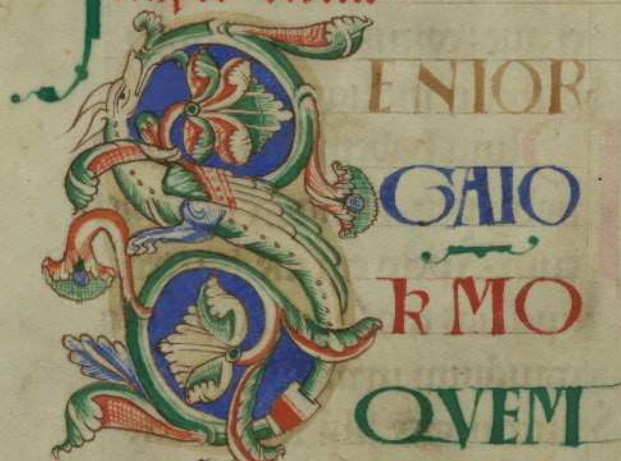 SENIOR
GAIO
KMO
QVEM